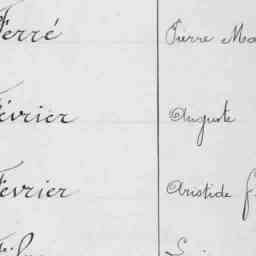 Ferré Pierre Ma
Février Auguste
Février Aristide